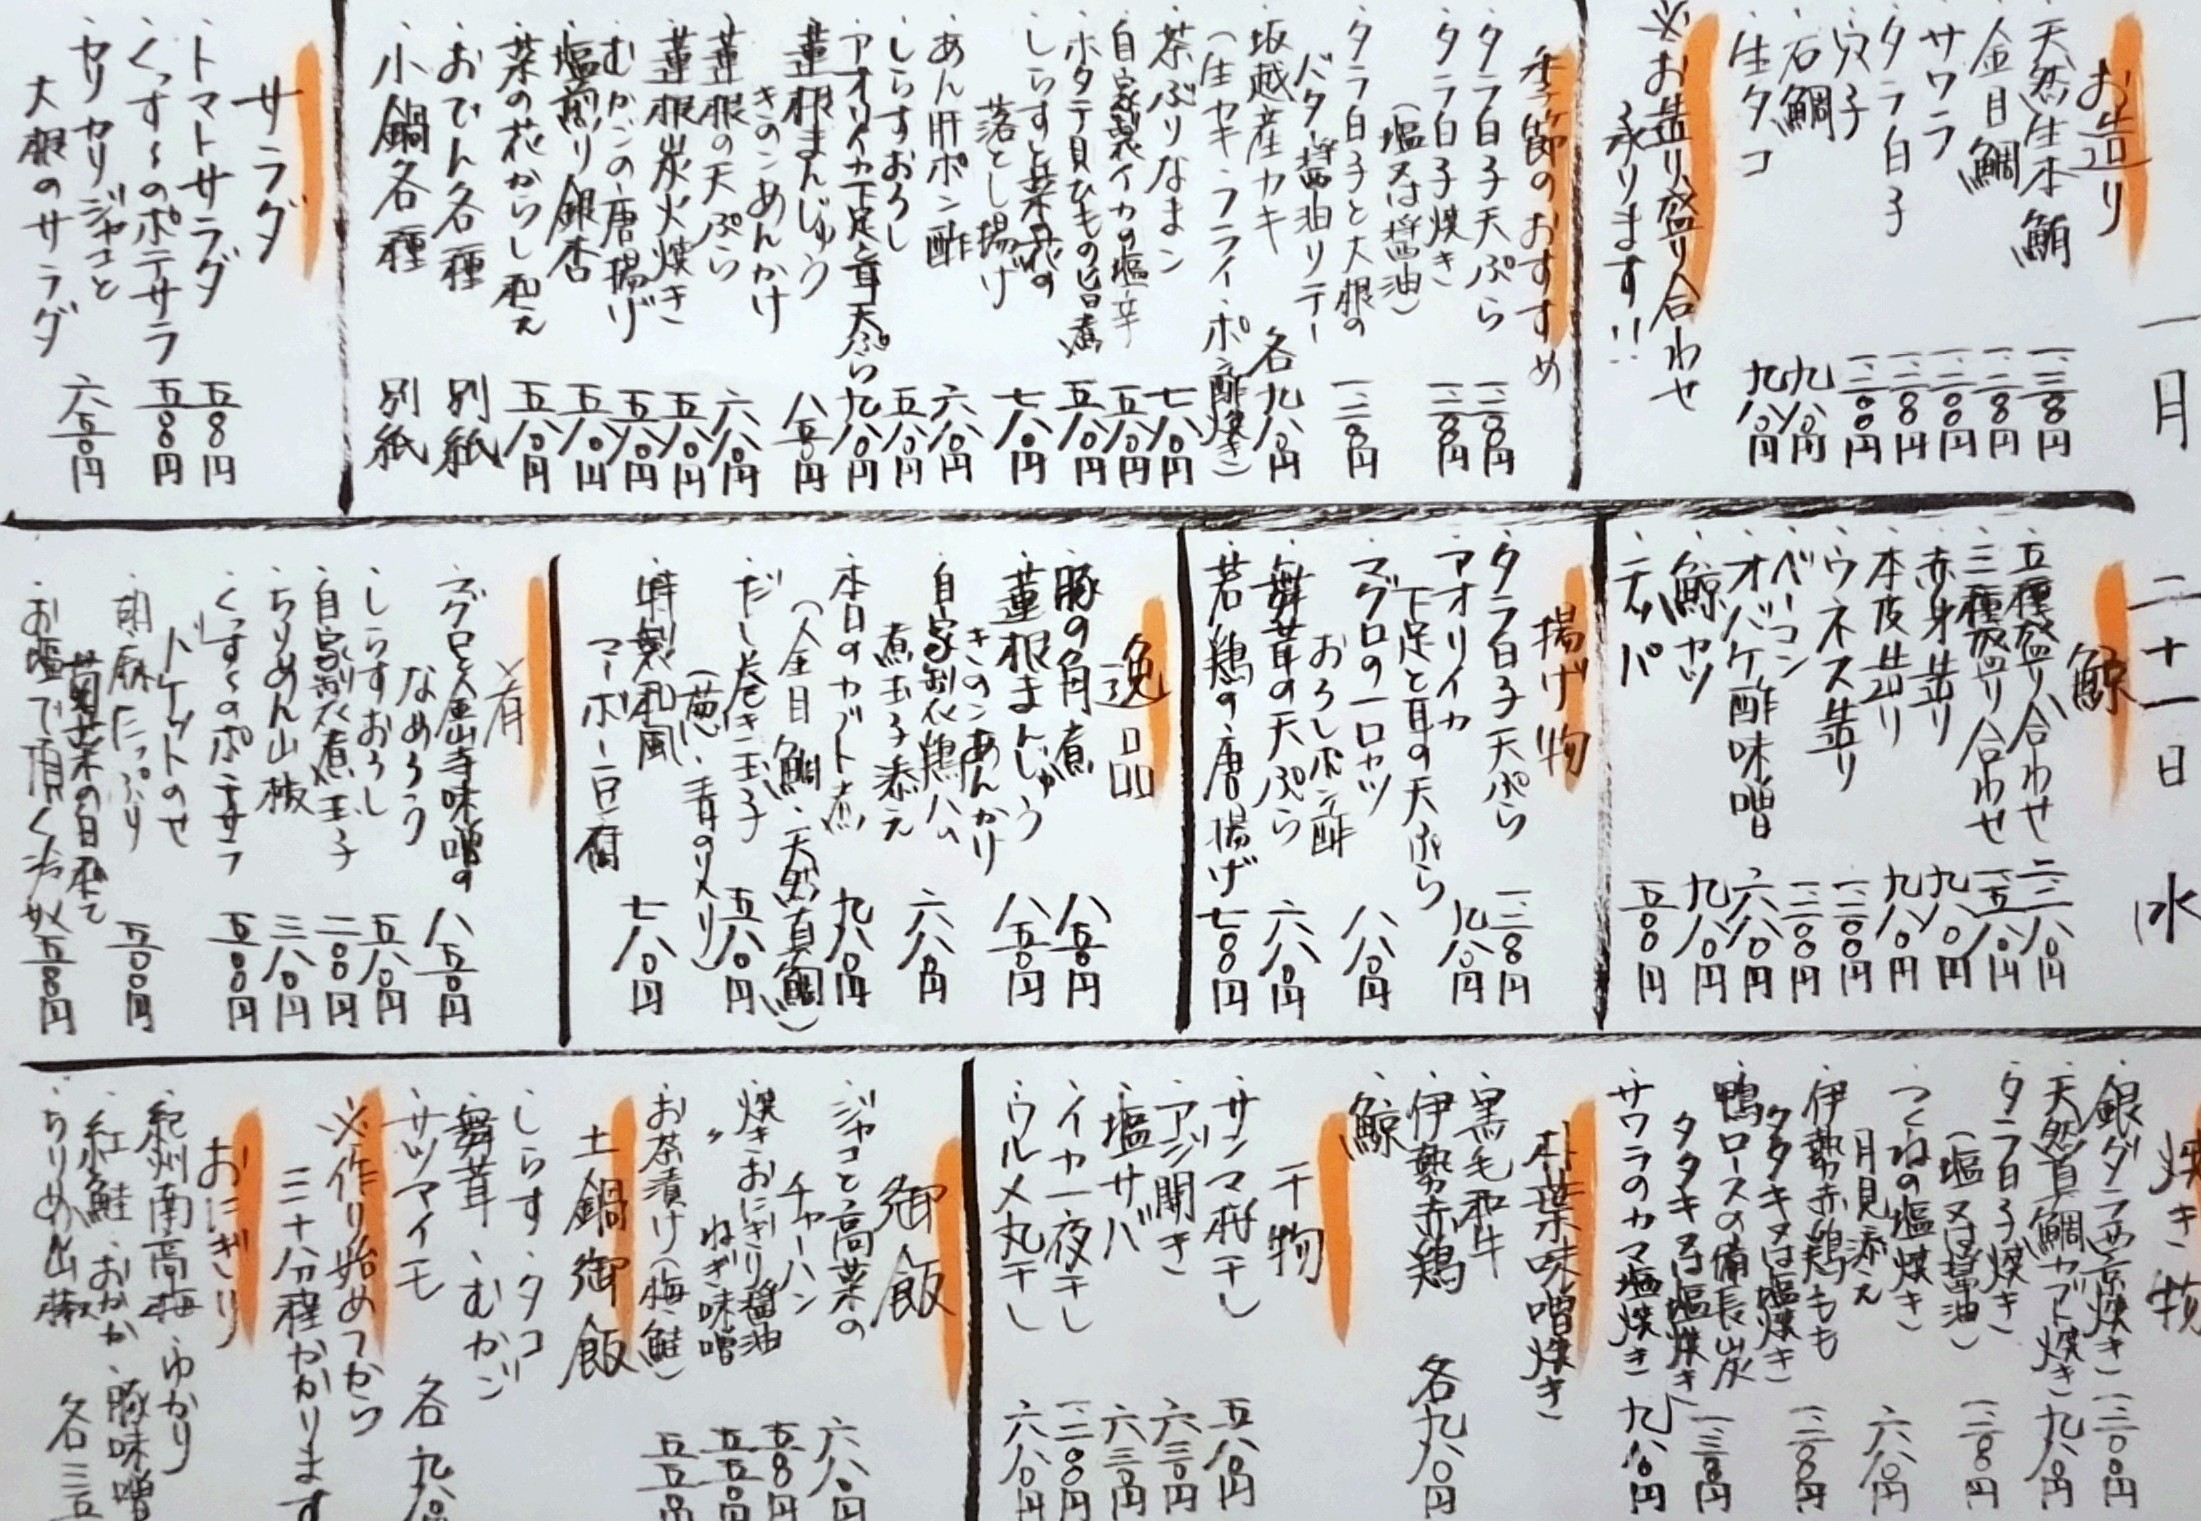 一月二十一日 水
お造り
・天然生本鮪 一、三〇〇円
・金目鯛 一、二〇〇円
・サワラ 一、二〇〇円
・タラ白子 一、二〇〇円
・穴子 一、二〇〇円
・石鯛 九八〇円
・生タコ 九八〇円
※お造り盛り合わせ
承ります!!
季節のおすすめ
・タラ白子天ぷら 一、三〇〇円
・タラ白子焼き 一、三〇〇円
(塩又は醤油)
・タラ白子と大根の
バター醤油ソテー 一、三〇〇円
・坂越産カキ 各九八〇円
(生カキ・フライ・ポン酢焼き)
・茶ぶりなまこ 七八〇円
・自家製イカの塩辛 五八〇円
・ホタテ貝ひもの旨煮 五八〇円
・しらすと菜の花の
落とし揚げ 七八〇円
・あん肝ポン酢 六八〇円
・しらすおろし 五八〇円
・アオリイカ下足と耳天ぷら 九八〇円
・蓮根まんじゅう
きのこあんかけ 八五〇円
・蓮根の天ぷら 六八〇円
・蓮根炭火焼き 五八〇円
・むかごの唐揚げ 五八〇円
・塩煎り銀杏 五八〇円
・菜の花からし和え 五八〇円
・おでん各種 別紙
・小鍋各種 別紙
サラダ
・トマトサラダ 五〇〇円
・くっすーのポテサラ 五〇〇円
・カリカリジャコと
大根のサラダ 六五〇円
鯨
・五種盛り合わせ 二、三八〇円
・三種盛り合わせ 一、五八〇円
・赤身造り 九八〇円
・本皮造り 九八〇円
・ウネス造り 一、二〇〇円
・ベーコン 一、三〇〇円
・オバケ酢味噌 六八〇円
・鯨カツ 九八〇円
・テッパ 五〇〇円
揚げ物
・タラ白子天ぷら 一、三〇〇円
・アオリイカ
下足と耳の天ぷら 九八〇円
・マグロの一口カツ
おろしポン酢 八八〇円
・舞茸の天ぷら 六八〇円
・若鶏の唐揚げ 七〇〇円
逸品
・豚の角煮 八五〇円
・蓮根まんじゅう
きのこあんかけ 八五〇円
・自家製鶏ハム
煮玉子添え 六八〇円
・本日のカブト煮 九八〇円
(金目鯛・天然真鯛)
・だし巻き玉子 五八〇円
(葱・青のり入り)
・特製和風
マーボー豆腐 七八〇円
・マグロと金山寺味噌の
なめろう 八五〇円
・しらすおろし 五八〇円
・自家製煮玉子 二〇〇円
・ちりめん山椒 三八〇円
・くっすーのポテサラ
バケットのせ 五〇〇円
・胡麻たっぷり
菊菜の白和え 五〇〇円
・お塩で頂く冷奴 五〇〇円
焼き物
・銀ダラ西京焼き 一、三〇〇円
・天然真鯛カブト焼き 九八〇円
・タラ白子焼き
(塩又は醤油) 一、三〇〇円
・つくねの塩焼き
月見添え 六八〇円
・伊勢赤鶏もも
タタキ又は塩焼き 一、三〇〇円
・鴨ロースの備長炭
タタキ又は塩焼き 一、三〇〇円
・サワラのカマ塩焼き 九八〇円
朴葉味噌焼き
・黒毛和牛
・伊勢赤鶏 各九八〇円
・鯨
干物
・サンマ桜干し 五八〇円
・アジ開き 六三〇円
・塩サバ 六三〇円
・イカ一夜干し 一、二〇〇円
・ウルメ丸干し 六八〇円
御飯
・ジャコと高菜の
チャーハン 六八〇円
・焼きおにぎり醤油 五〇〇円
・〃 ねぎ味噌 五五〇
・お茶漬け(梅・鮭) 五五〇
土鍋御飯
・しらす・タコ
・舞茸・むかご
・サツマイモ 各九八〇
※作り始めてから
三十分程かかります
おにぎり
・紀州南高梅・ゆかり
・紅鮭・おかか・豚味噌
・ちりめん山椒 各三五